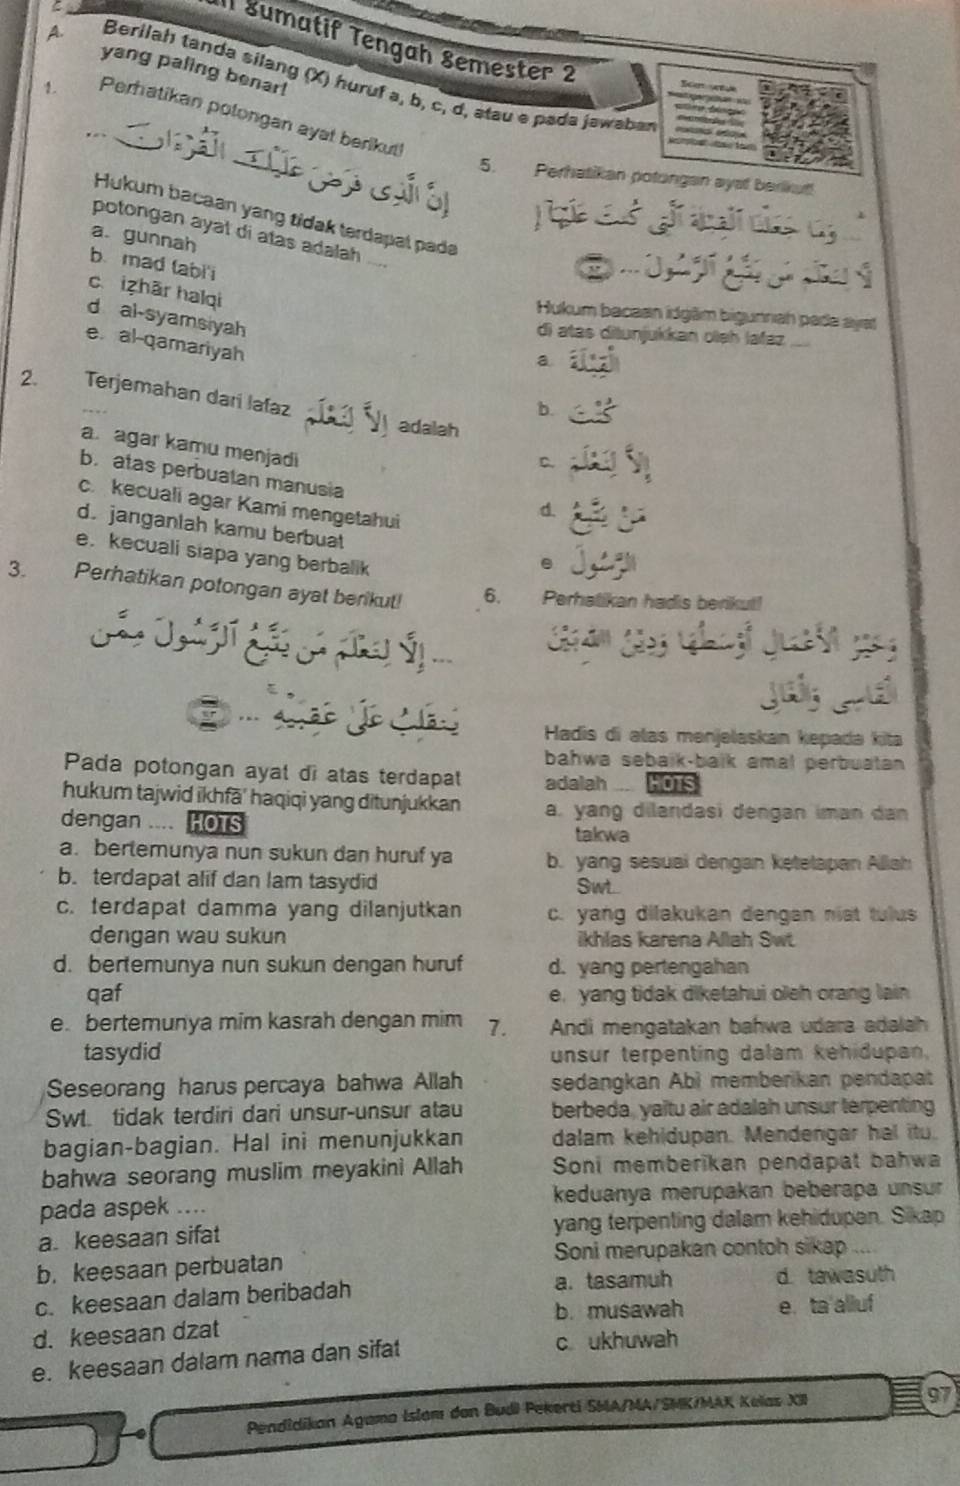 Sumatif Tengah Semester 2
A. Berilah tanda silang (X) huruf a, b, c, d, atau e pada jawaban
yang paling benar!
1. Perhatikan potongan ayat berikut!
إِنَّ الَّذِي فَرَضَ عَلَيْكَ الْقُرْآنَ ...
Hukum bacaan yang tidak terdapat pada
potongan ayat di atas adalah ....
a. gunnah
b. mad tabi'i
c. iẓhār halqi
d. al-syamsiyah
e. al-qamariyah
2. Terjemahan dari lafaz إِلَّا لِنَعْلَمَ adalah
....
a. agar kamu menjadi
b. atas perbuatan manusia
c. kecuali agar Kami mengetahui
d. janganlah kamu berbuat
e. kecuali siapa yang berbalik
3. Perhatikan potongan ayat berikut!
... إِلَّا لِنَعْلَمَ مَن يَتَّبِعُ الرَّسُولَ مِمَّن
يَنقَلِبُ عَلَىٰ عَقِبَيْهِ ...
Pada potongan ayat di atas terdapat
hukum tajwid ikhfā' haqiqi yang ditunjukkan
dengan .... HOTS
a. bertemunya nun sukun dan huruf ya
b. terdapat alif dan lam tasydid
c. terdapat damma yang dilanjutkan
dengan wau sukun
d. bertemunya nun sukun dengan huruf
qaf
e. bertemunya mim kasrah dengan mim
tasydid
Seseorang harus percaya bahwa Allah
Swt. tidak terdiri dari unsur-unsur atau
bagian-bagian. Hal ini menunjukkan
bahwa seorang muslim meyakini Allah
pada aspek ....
a. keesaan sifat
b. keesaan perbuatan
c. keesaan dalam beribadah
d. keesaan dzat
e. keesaan dalam nama dan sifat
5. Perhatikan potongan ayat berikut!
... وَمَا جَعَلْنَا الْقِبْلَةَ الَّتِي كُنتَ عَلَيْهَا
إِلَّا لِنَعْلَمَ مَن يَتَّبِعُ الرَّسُولَ ...
Hukum bacaan idgām bigunnah pada ayat
di atas ditunjukkan oleh lafaz ....
a. الْقِبْلَةَ
b. كُنتَ
c. إِلَّا لِنَعْلَمَ
d. مَن يَتَّبِعُ
e. الرَّسُولَ
6. Perhatikan hadis berikut!
Hadis di atas menjelaskan kepada kita
bahwa sebaik-baik amal perbuatan
adalah .... HOTS
a. yang dilandasi dengan iman dan
takwa
b. yang sesuai dengan ketetapan Allah
Swt.
c. yang dilakukan dengan niat tulus
ikhlas karena Allah Swt.
d. yang pertengahan
e. yang tidak diketahui oleh orang lain
7. Andi mengatakan bahwa udara adalah
unsur terpenting dalam kehidupan,
sedangkan Abi memberikan pendapat
berbeda, yaitu air adalah unsur terpenting
dalam kehidupan. Mendengar hal itu,
Soni memberikan pendapat bahwa
keduanya merupakan beberapa unsur
yang terpenting dalam kehidupan. Sikap
Soni merupakan contoh sikap ....
a. tasamuh
b. musawah
c. ukhuwah
d. tawasuth
e. ta'alluf
Pendidikan Agama Islam dan Budi Pekerti SMA/MA/SMK/MAK Kelas XII
97